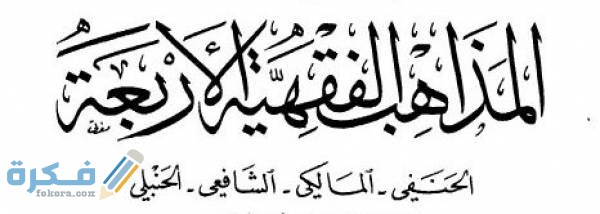 المذاهب الفقهية الأربعة
الحنفي - المالكي - الشافعي - الحنبلي
فكرة
fokora.com